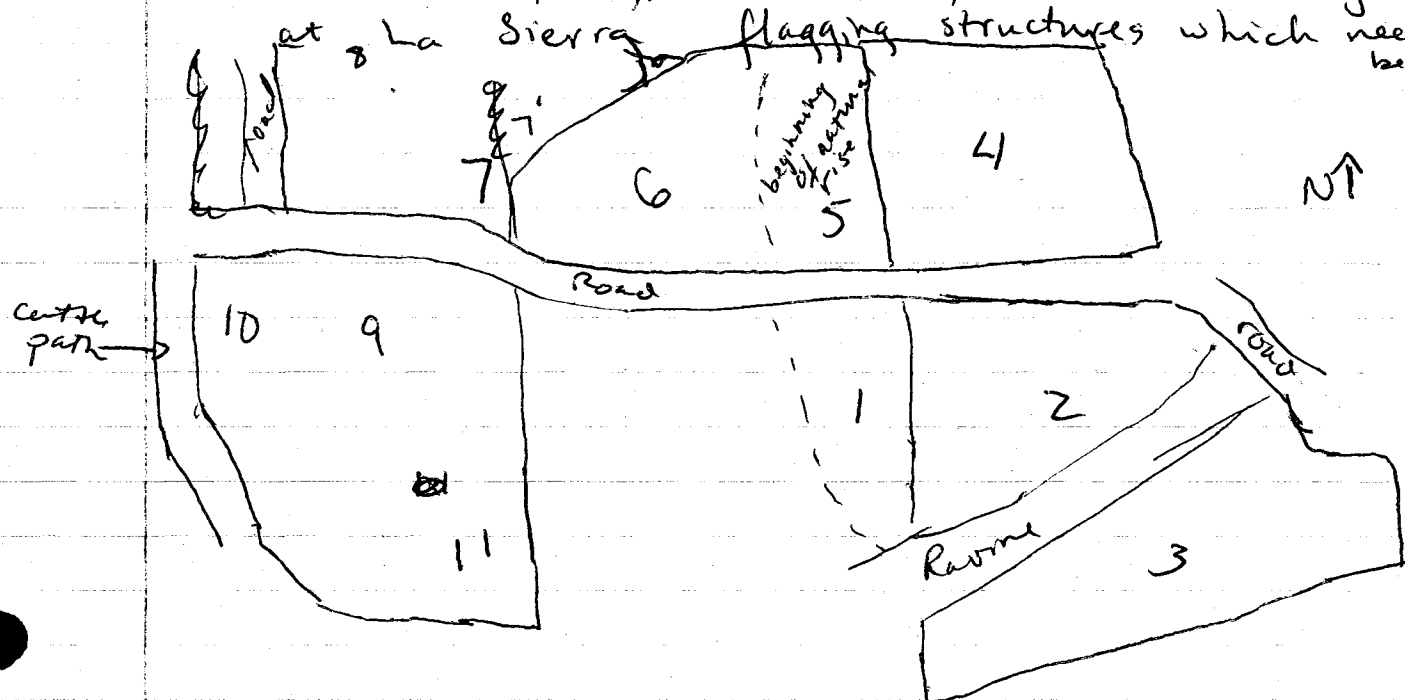 at La Sierra flagging structures which nee
be
8
road
7'
7
6
beginning
of natural
rise
5
4
N↑
Road
road
Centre
path
10
9
1
2
11
Ravine
3